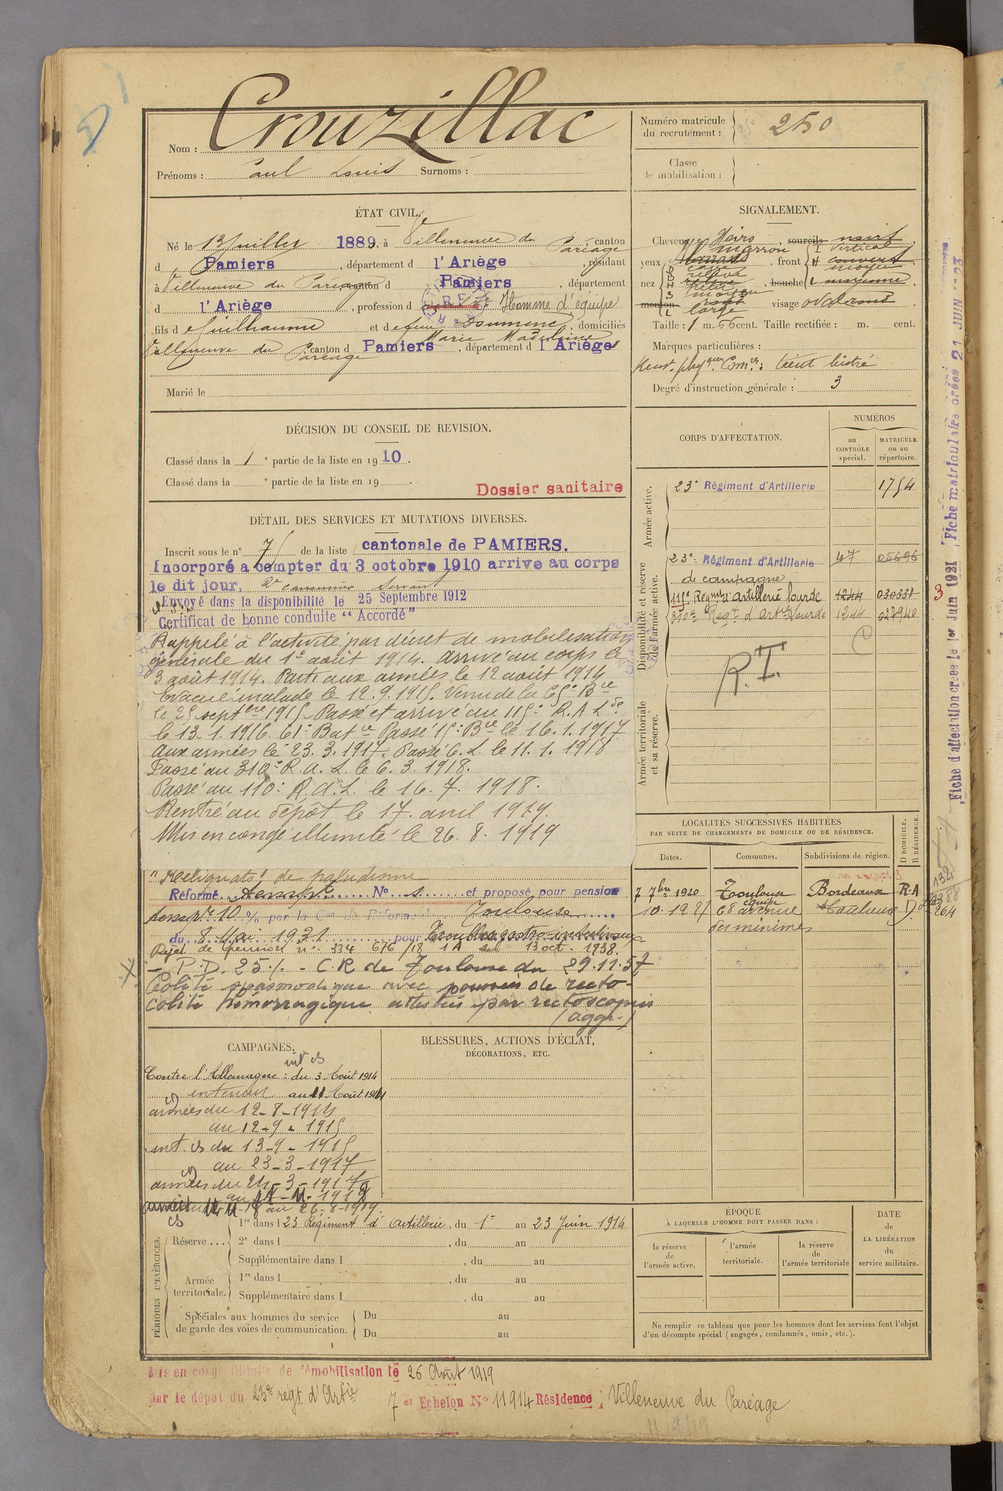 Nom : Crouzillac
Prénoms : Paul Louis Surnoms :
Numéro matricule
du recrutement : 250
Classe
de mobilisation :
ÉTAT CIVIL.
Né le 13 Juillet 1889, à Villeneuve du Paréage canton
d Pamiers, département d l'Ariège, résidant
à Villeneuve du Paréage canton d Pamiers, département
d l'Ariège, profession d Homme d'équipe
fils d Guilhaume et d Marie Madeleine, domiciliés
à Villeneuve du Paréage canton d Pamiers, département d l'Ariège
Marié le
SIGNALEMENT.
Cheveux Noirs sourcils noirs
yeux marron, front vertical
nez, bouche moyenne
menton rond visage ovale
Taille : 1 m. 66 cent. Taille rectifiée : m. cent.
Marques particulières :
teint bistré
Degré d'instruction générale : 3
DÉCISION DU CONSEIL DE REVISION.
Classé dans la 1e partie de la liste en 1910.
Classé dans la e partie de la liste en 19 .
Dossier sanitaire
DÉTAIL DES SERVICES ET MUTATIONS DIVERSES.
Inscrit sous le n° 75 de la liste cantonale de PAMIERS.
Incorporé à compter du 3 octobre 1910 arrivé au corps
le dit jour, 2e canonnier servant
Envoyé dans la disponibilité le 25 Septembre 1912
Certificat de bonne conduite "Accordé"
Rappelé à l'activité par décret de mobilisation
générale du 1er août 1914. Arrivé au corps le
3 août 1914. Parti aux armées le 12 août 1914
Evacué malade le 12.9.1915. Venu de la 65e Bie
le 25 septbre 1915. Passé et arrivé au 115e R.A.Lde
le 13.1.1916 61e Batie Passé 15e Bie le 16.1.1917
aux armées le 23.3.1917. Passé C.L. le 11.1.1918
Passé au 310e R.A.L. le 6.3.1918.
Passé au 110e R.A.L. le 16.7.1918.
Rentré au dépôt le 17 avril 1919.
Mis en congé illimité le 26.8.1919
"Reliquats" de paludisme
Réformé N° et proposé pour pension
10 % par la Cion de Réforme Toulouse
du 8 Mai 1931 pour Troubles gastro-intestinaux
Rejet de pension n° 334 676/18 1A du 13 oct. 1938.
P.D. 25% - C.R de Toulouse du 29.11.57
Colite spasmodique avec poussées de recto-
colite hémorragique attestées par rectoscopies
(aggr.)
CORPS D'AFFECTATION.
NUMÉROS
au
CONTRÔLE
spécial.
MATRICULE
ou au
répertoire.
Armée active.
23e Régiment d'Artillerie 1754
Disponibilité et réserve
de l'armée active.
23e Régiment d'Artillerie 47 05696
de campagne
111e Régiment d'artillerie lourde 1244 030331
310e Régt d'Art. Lourde 1244
R.I.
Armée territoriale
et sa réserve.
LOCALITÉS SUCCESSIVES HABITÉES
PAR SUITE DE CHANGEMENTS DE DOMICILE OU DE RÉSIDENCE.
Dates. Communes. Subdivisions de région. D DOMICILE. R RÉSIDENCE.
7 7bre 1920 Toulouse Bordeaux R.A
10.12.25 68 avenue Toulouse D
des minimes
Fiche d'affectation créée le 1er Juin 1921, Fiche matriculaire créée 21 JUIN 1923
CAMPAGNES.
Contre l'Allemagne : du 3 Août 1914
intérieur au 11 Août 1914
armées du 12-8-1914
au 12-9-1915
int. du 13-9-1915
au 23-3-1917
armées du 24-3-1917
BLESSURES, ACTIONS D'ÉCLAT,
DÉCORATIONS, ETC.
PÉRIODES D'EXERCICES.
Réserve ....
1re dans l 23 Régiment d'artillerie, du 1er au 23 Juin 1914
2e dans l , du au
Supplémentaire dans l , du au
Armée
territoriale.
1re dans l , du au
Supplémentaire dans l , du au
Spéciales aux hommes du service
de garde des voies de communication.
Du au
Du au
ÉPOQUE
À LAQUELLE L'HOMME DOIT PASSER DANS :
la réserve
de
l'armée active.
l'armée
territoriale.
la réserve
de
l'armée territoriale
DATE
de
LA LIBÉRATION
du
service militaire.
Ne remplir ce tableau que pour les hommes dont les services font l'objet
d'un décompte spécial (engagés, condamnés, omis, etc.).
Mis en congé illimité de démobilisation le 26 Août 1919
par le dépôt du 23e régt d'Artie 7 er Echelon N° 11914 Résidence : Villeneuve du Paréage